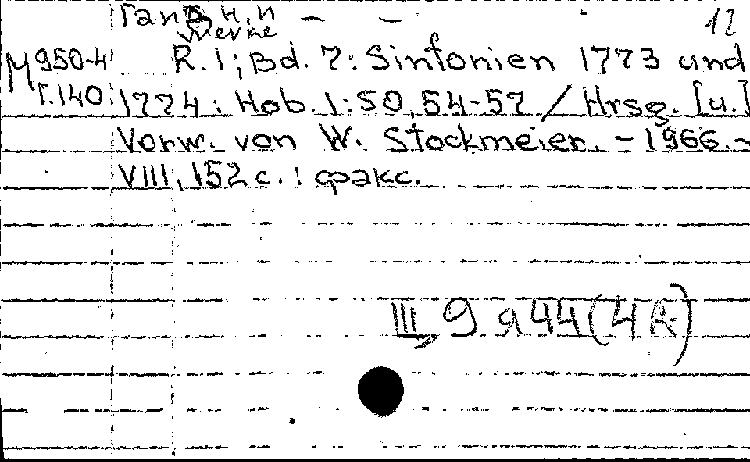 Гайдн, И 12
Werke
М 950-4 R. 1; Bd. 7: Sinfonien 1773 und
Т.140 1774: Hob. 1:50, 54-57 / Hrsg. [u.]
Vorw. von W. Stockmeier. - 1966. -
VIII, 152 с. : факс.
III, 9 я 44 (4 А)